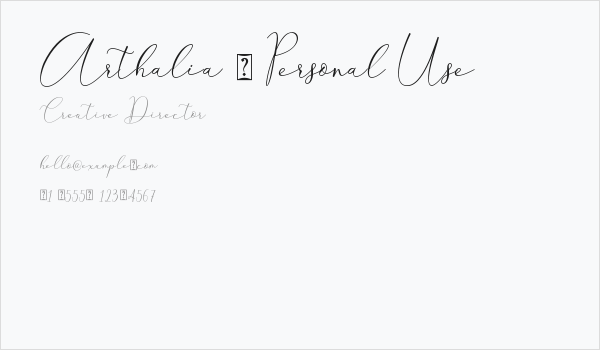 Arthalia � Personal Use
Creative Director
hello@example�com
�1 �555� 123�4567